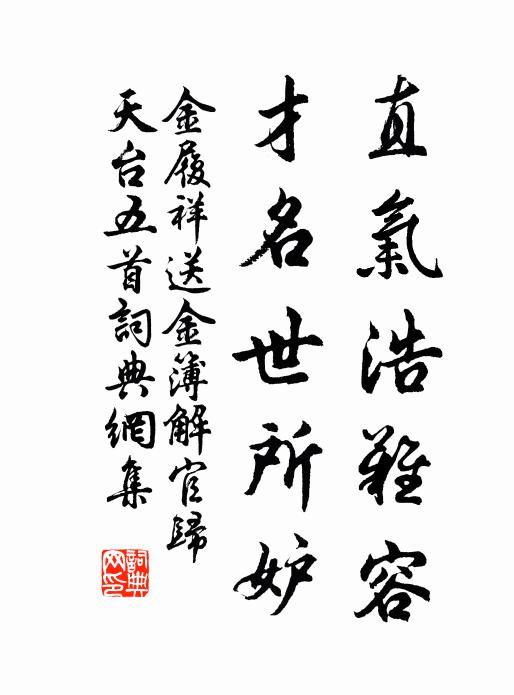 直氣浩難容
才名世所妒
金履祥送金簿解官歸
天台五首詞典網集
詞典网印